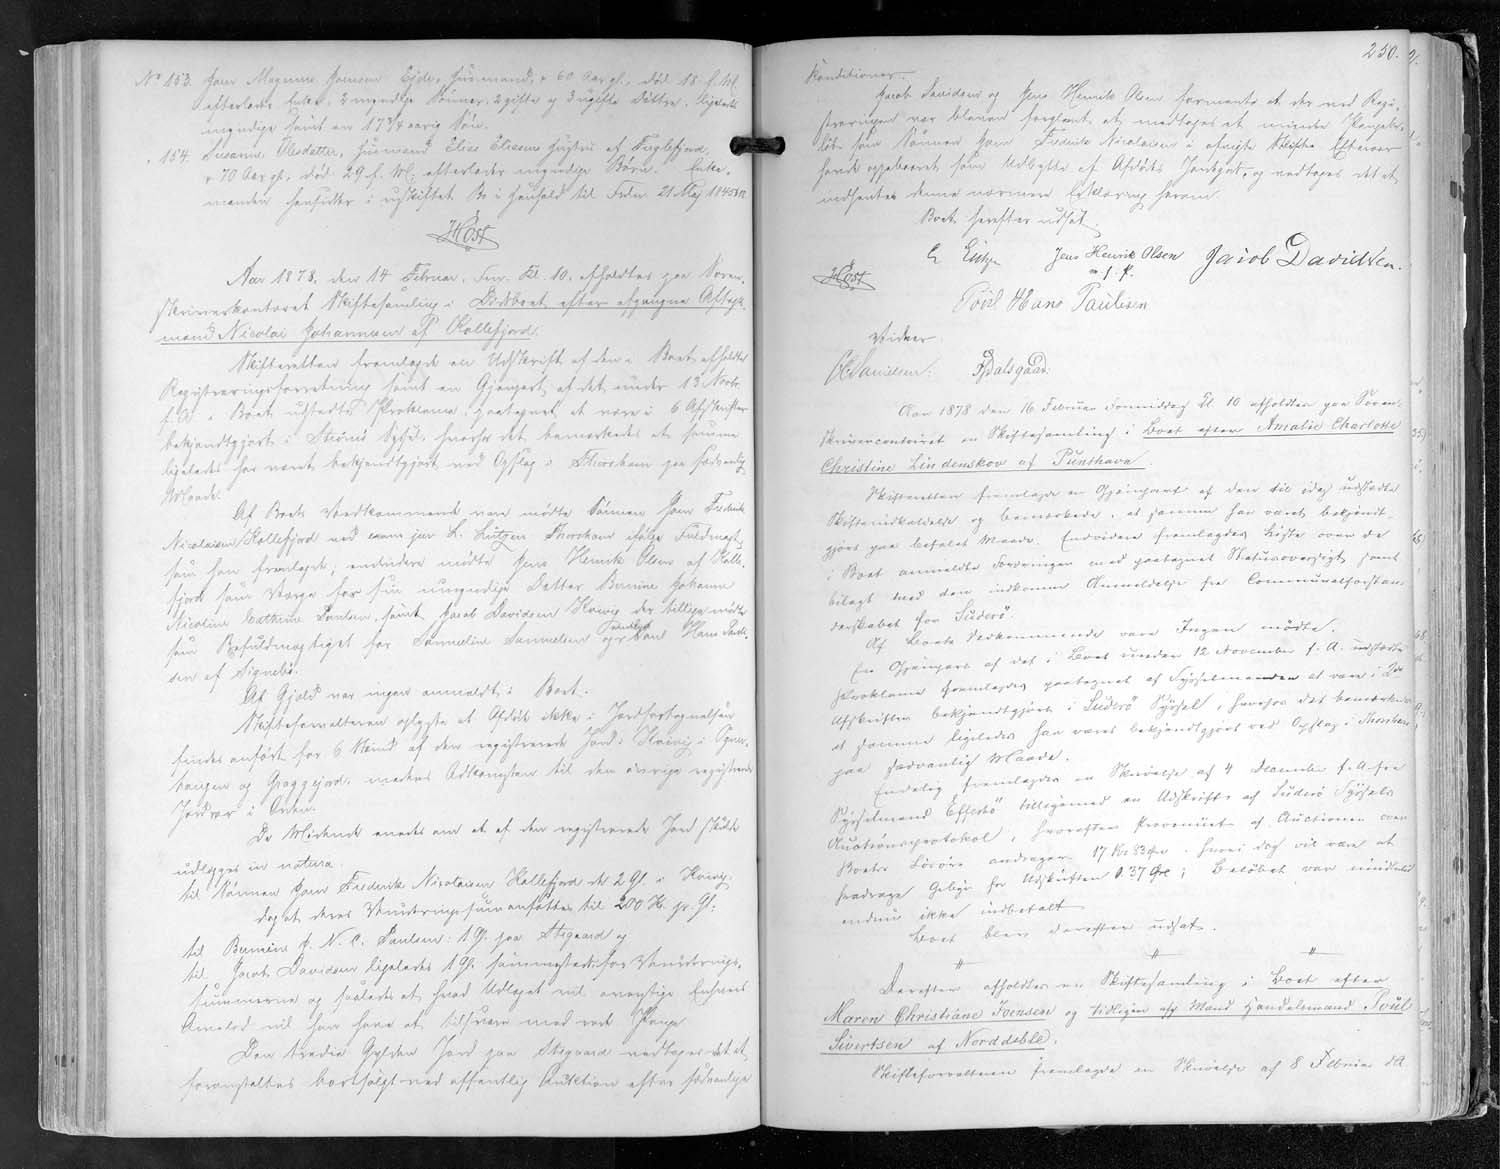 No 153. Joen Magnus Joensen Eide, Huusmand, 60 Aar gl., død 18 f. M.
efterlader Enke, 2 myndige Sønner, 2 gifte og 3 ugifte Døttre, ligeledes
myndige samt en 17 3/4 aarig Søn.
" 154. Susanne Olesdatter, Huusmand Elias Eliasens Hustru af Fuglefjord,
70 Aar gl., død 29 f. M. efterlader myndige Børn. Enke-
manden hensidder i uskiftet Bo i Henhold til Frdn. 21 Maj 1845
Høst
Aar 1878, den 14 Februar, Frm. Kl. 10, afholdtes paa Soren-
skriverkontoret Skiftesamling i Dødsboet efter afgangne Aftægts-
mand Nicolai Johannesen af Kollefjord.
Skifteretten fremlagde en Udskrift af den i Boet afholdte
Registreringsforretning samt en Gjenpart af det under 13 Novbr.
f. A. i Boet udstedte Proklama, paategnet at være i 6 Afskrifter
bekjendtgjort i Strømø Syssel, hvorhos det bemærkedes at samme
ligeledes har været bekjendtgjort ved Opslag i Thorshavn paa sædvanlig
Maade.
Af Boets Vedkommende var mødte Sønnen Joen Fredrik
Nicolaisen Kollefjord ved E. Lützen Thorshavn ifølge Fuldmagt,
som han fremlagde, endvidere mødte Jens Henrik Olsen af Kolle-
fjord som Værge for sin umyndige Datter Bernine Johanne
Nicoline Cathrine Paulsen, samt Jacob Davidsen Kvivig der tillige mødte
som Befuldmægtiget for Sunneline Samuelsen og Hans Paul-
sen af Signebø.
Af Gjæld var ingen anmeldt i Boet.
Skifteforvalteren oplyste at Afdøde ikke i Jordfortegnelsen
findes anført for 6 Skind af den registrerede Jord i Kvivig i
og medens Adkomsten til den øvrige registrerede
Jord var i Orden.
De Mødende enedes om at af den registrerede Jord skulde
udlægges in natura:
til Sønnen Joen Fredrik Nicolaisen Kollefjord de 2 Gl. i Kvivig,
dog at deres Vurderingssum ansættes til 200 Kr. pr. Gl.
til Bernine J. N. C. Paulsen: 1 Gl. paa Stegaard og
til Jacob Davidsen ligeledes 1 Gl. sammesteds for Vurderings-
summerne og saaledes at, hvad Udlæget vil overstige Enhvers
Arvelod vil han have at tilsvare med rede Penge.
Den tredie Gylden Jord paa Stegaard vedtoges det at
foranstaltes bortsolgt ved offentlig Auktion efter sædvanlige
250.
Konditioner.
Jacob Davidsen og Jens Henrik Olsen formente at der ved Regi-
streringen var bleven forglemt at medtages et mindre Pengebe-
løb som Sønnen Joen Fredrik Nicolaisen i afvigte Efteraar
havde oppebaaret som Udbytte af Afdødes Jordegods, og vedtoges det at
indhentes denne nærmere Erklæring herom.
Boet herefter udsat
Høst E Lützen Jens Henrik Olsen Jacob Davidsen.
m. f. P.
Poul Hans Paulsen
Vidner:
Danielsen. Dalsgaard.
Aar 1878 den 16 Februar Formiddag Kl. 10 afholdtes paa Soren-
skrivercontoiret en Skiftesamling i Boet efter Amalie Charlotte
Christine Lindenskov af Punthava.
Skifteretten fremlagde en Gjenpart af den til idag udstedte
Skifteindkaldelse og bemærkede, at samme har været bekjendt-
gjort paa befalet Maade. Endvidere fremlagdes Liste over de
i Boet anmeldte Fordringer med paategnet Statusoversigt, samt
bilagt med den indkomne Anmeldelse fra Communalforstan-
derskabet for Suderø.
Af Boets Vedkommende vare Ingen mødte.
En Gjenpart af det i Boet under 12 November f. A. udstedte
Proklama fremlagdes paategnet af Sysselmanden at være i 2de
Afskrifter bekjendtgjort i Suderø Syssel, hvorhos det bemærkedes
at samme ligeledes har været bekjendtgjort ved Opslag i Thorshavn
paa sædvanlig Maade.
Endelig fremlagdes en Skrivelse af 4 December f. A. fra
Sysselmand Effersø tilligemed en Udskrift af Suderø Syssels
Auctionsprotokol, hvorefter Provenuet af Auctionen over
Boets Løsøre andrager 17 Kr 83 Øre, hvori dog vil være at
fradrage Gebyr for Udskriften 0.37 Øre; Beløbet var imidlertid
endnu ikke indbetalt.
Boet blev derefter udsat.
" " "
Derefter afholdtes en Skiftesamling i Boet efter
Maren Christiane Joensen og tidligere afg. Mand Handelsmand Poul
Sivertsen af Norddeble.
Skifteforvalteren fremlagde en Skrivelse af 8 Februar d. A.